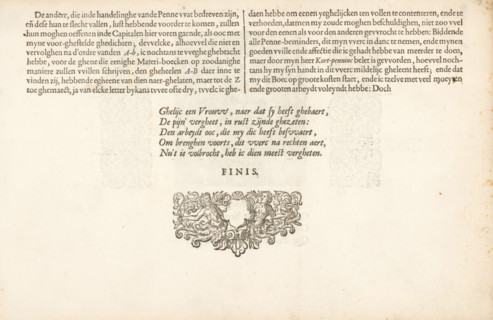 De andere, die inde handelinghe vande Penne vvat bedreven zijn,
en dese hun te slecht vallen, lust hebbende voorder te komen, zullen
hun moghen oeffenen inde Capitalen hier voren gaende, als ooc met
myne voor-ghestelde ghedichten; devvelcke, alhoevvel die niet en
vervolghen na d'ordre vanden A-b, ic nochtans te vveghe ghebracht
hebbe, voor de ghene die eenighe Materi-boecken op zoodanighe
maniere zullen vvillen schrijven, den gheheelen A-B daer inne te
vinden zij, hebbende egheene van dien naer-ghelaten, maer tot de Z
toe ghemaect, ja van elcke letter bykans tvvee oft dry, tvvelc ic ghe-
daen hebbe om eenen yeghelijcken ten vollen te contenteren, ende te
verhoeden, datmen my zoude moghen beschuldighen, niet zoo vvel
voor den eenen als voor den anderen gevvrocht te hebben: Biddende
alle Penne-beminders, dit myn vverc in danc te nemen, ende mynen
goeden vville ende affectie die ic gehadt hebbe van meerder te doen,
maer door myn heer Kort-penninc belet is gevvorden, hoevvel noch-
tans hy my syn handt in dit vverc mildelic gheleent heeft; ende dat
my dit Boec op groote kosten staet, ende ic tzelve met veel moeyten
ende grooten arbeydt voleyndt hebbe: Doch
Ghelijc een Vrouvv, naer dat sy heeft ghebaert,
De pijn' vergheet, in rust zijnde ghezeten:
Den arbeydt ooc, die my dic heeft besvvaert,
Om brenghen voorts, dit vverc na rechten aert,
Nu't is volbrocht, heb ic dien meest vergheten.
FINIS.